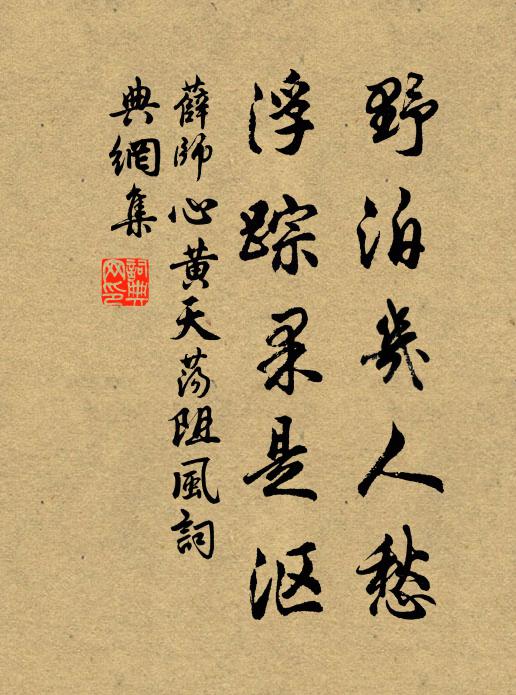 野泊幾人愁
浮踪果是沤
薛師心黃天荡阻風詞
典網集
詞典
网印